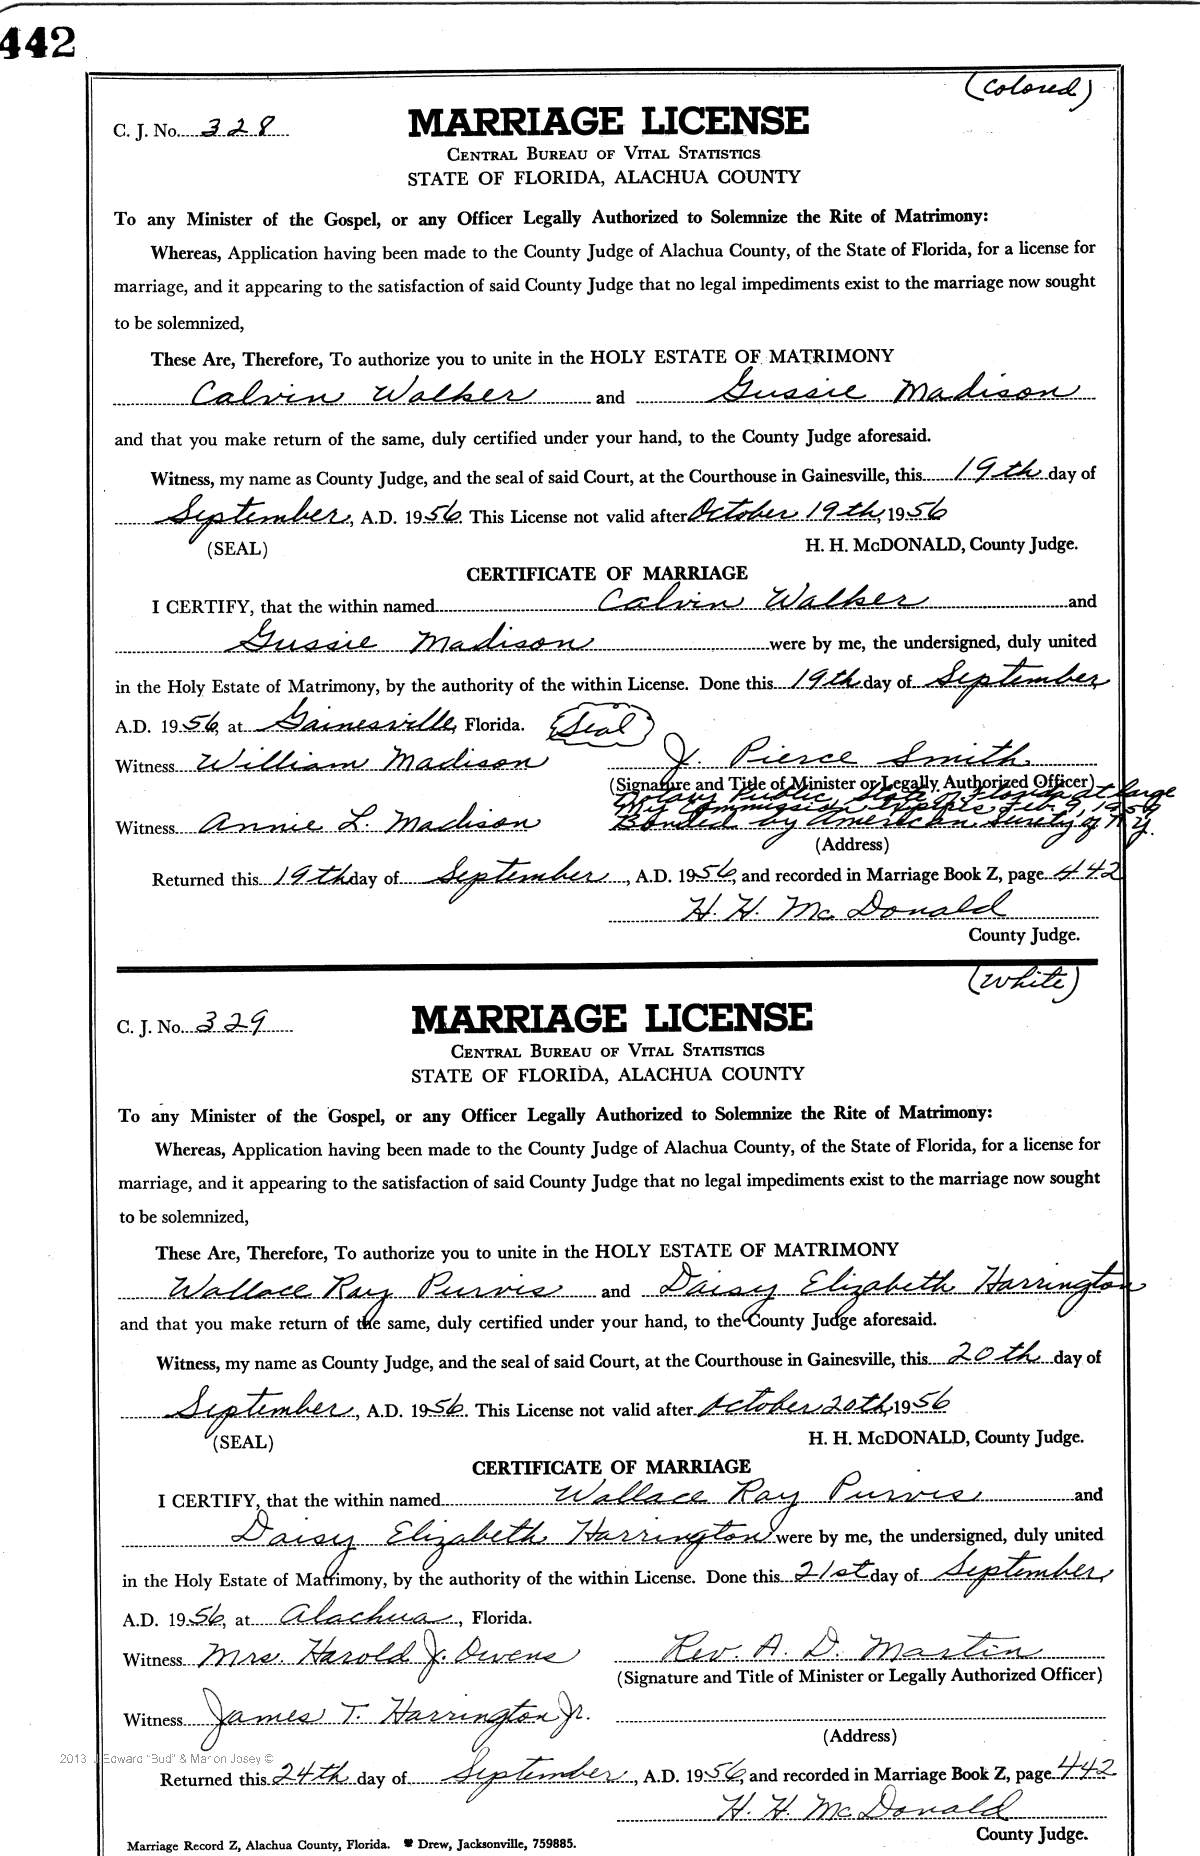 442
(Colored)
C. J. No. 328 MARRIAGE LICENSE
CENTRAL BUREAU OF VITAL STATISTICS
STATE OF FLORIDA, ALACHUA COUNTY
To any Minister of the Gospel, or any Officer Legally Authorized to Solemnize the Rite of Matrimony:
Whereas, Application having been made to the County Judge of Alachua County, of the State of Florida, for a license for
marriage, and it appearing to the satisfaction of said County Judge that no legal impediments exist to the marriage now sought
to be solemnized,
These Are, Therefore, To authorize you to unite in the HOLY ESTATE OF MATRIMONY
Calvin Walker and Gussie Madison
and that you make return of the same, duly certified under your hand, to the County Judge aforesaid.
Witness, my name as County Judge, and the seal of said Court, at the Courthouse in Gainesville, this 19th day of
September, A.D. 1956. This License not valid after October 19th, 1956
(SEAL) H. H. McDONALD, County Judge.
CERTIFICATE OF MARRIAGE
I CERTIFY, that the within named Calvin Walker and
Gussie Madison were by me, the undersigned, duly united
in the Holy Estate of Matrimony, by the authority of the within License. Done this 19th day of September,
A.D. 1956, at Gainesville, Florida. Seal
Witness William Madison J. Pierce Smith
(Signature and Title of Minister or Legally Authorized Officer)
Notary Public, State of Florida at large
My Commission Expires Feb. 9, 1959
Witness Annie L. Madison Bonded by American Surety of N.Y.
(Address)
Returned this 19th day of September, A.D. 1956, and recorded in Marriage Book Z, page 442
H. H. McDonald
County Judge.
(White)
C. J. No. 329 MARRIAGE LICENSE
CENTRAL BUREAU OF VITAL STATISTICS
STATE OF FLORIDA, ALACHUA COUNTY
To any Minister of the Gospel, or any Officer Legally Authorized to Solemnize the Rite of Matrimony:
Whereas, Application having been made to the County Judge of Alachua County, of the State of Florida, for a license for
marriage, and it appearing to the satisfaction of said County Judge that no legal impediments exist to the marriage now sought
to be solemnized,
These Are, Therefore, To authorize you to unite in the HOLY ESTATE OF MATRIMONY
Wallace Ray Purvis and Daisy Elizabeth Harrington
and that you make return of the same, duly certified under your hand, to the County Judge aforesaid.
Witness, my name as County Judge, and the seal of said Court, at the Courthouse in Gainesville, this 20th day of
September, A.D. 1956. This License not valid after October 20th, 1956
(SEAL) H. H. McDONALD, County Judge.
CERTIFICATE OF MARRIAGE
I CERTIFY, that the within named Wallace Ray Purvis and
Daisy Elizabeth Harrington were by me, the undersigned, duly united
in the Holy Estate of Matrimony, by the authority of the within License. Done this 21st day of September,
A.D. 1956, at Alachua, Florida.
Witness Mrs. Harold J. Owens Rev. A. D. Martin
(Signature and Title of Minister or Legally Authorized Officer)
Witness James T. Harrington Jr.
(Address)
2013 J Edward "Bud" & Marion Josey ©
Returned this 24th day of September, A.D. 1956, and recorded in Marriage Book Z, page 442
H. H. McDonald
County Judge.
Marriage Record Z, Alachua County, Florida. Drew, Jacksonville, 759885.